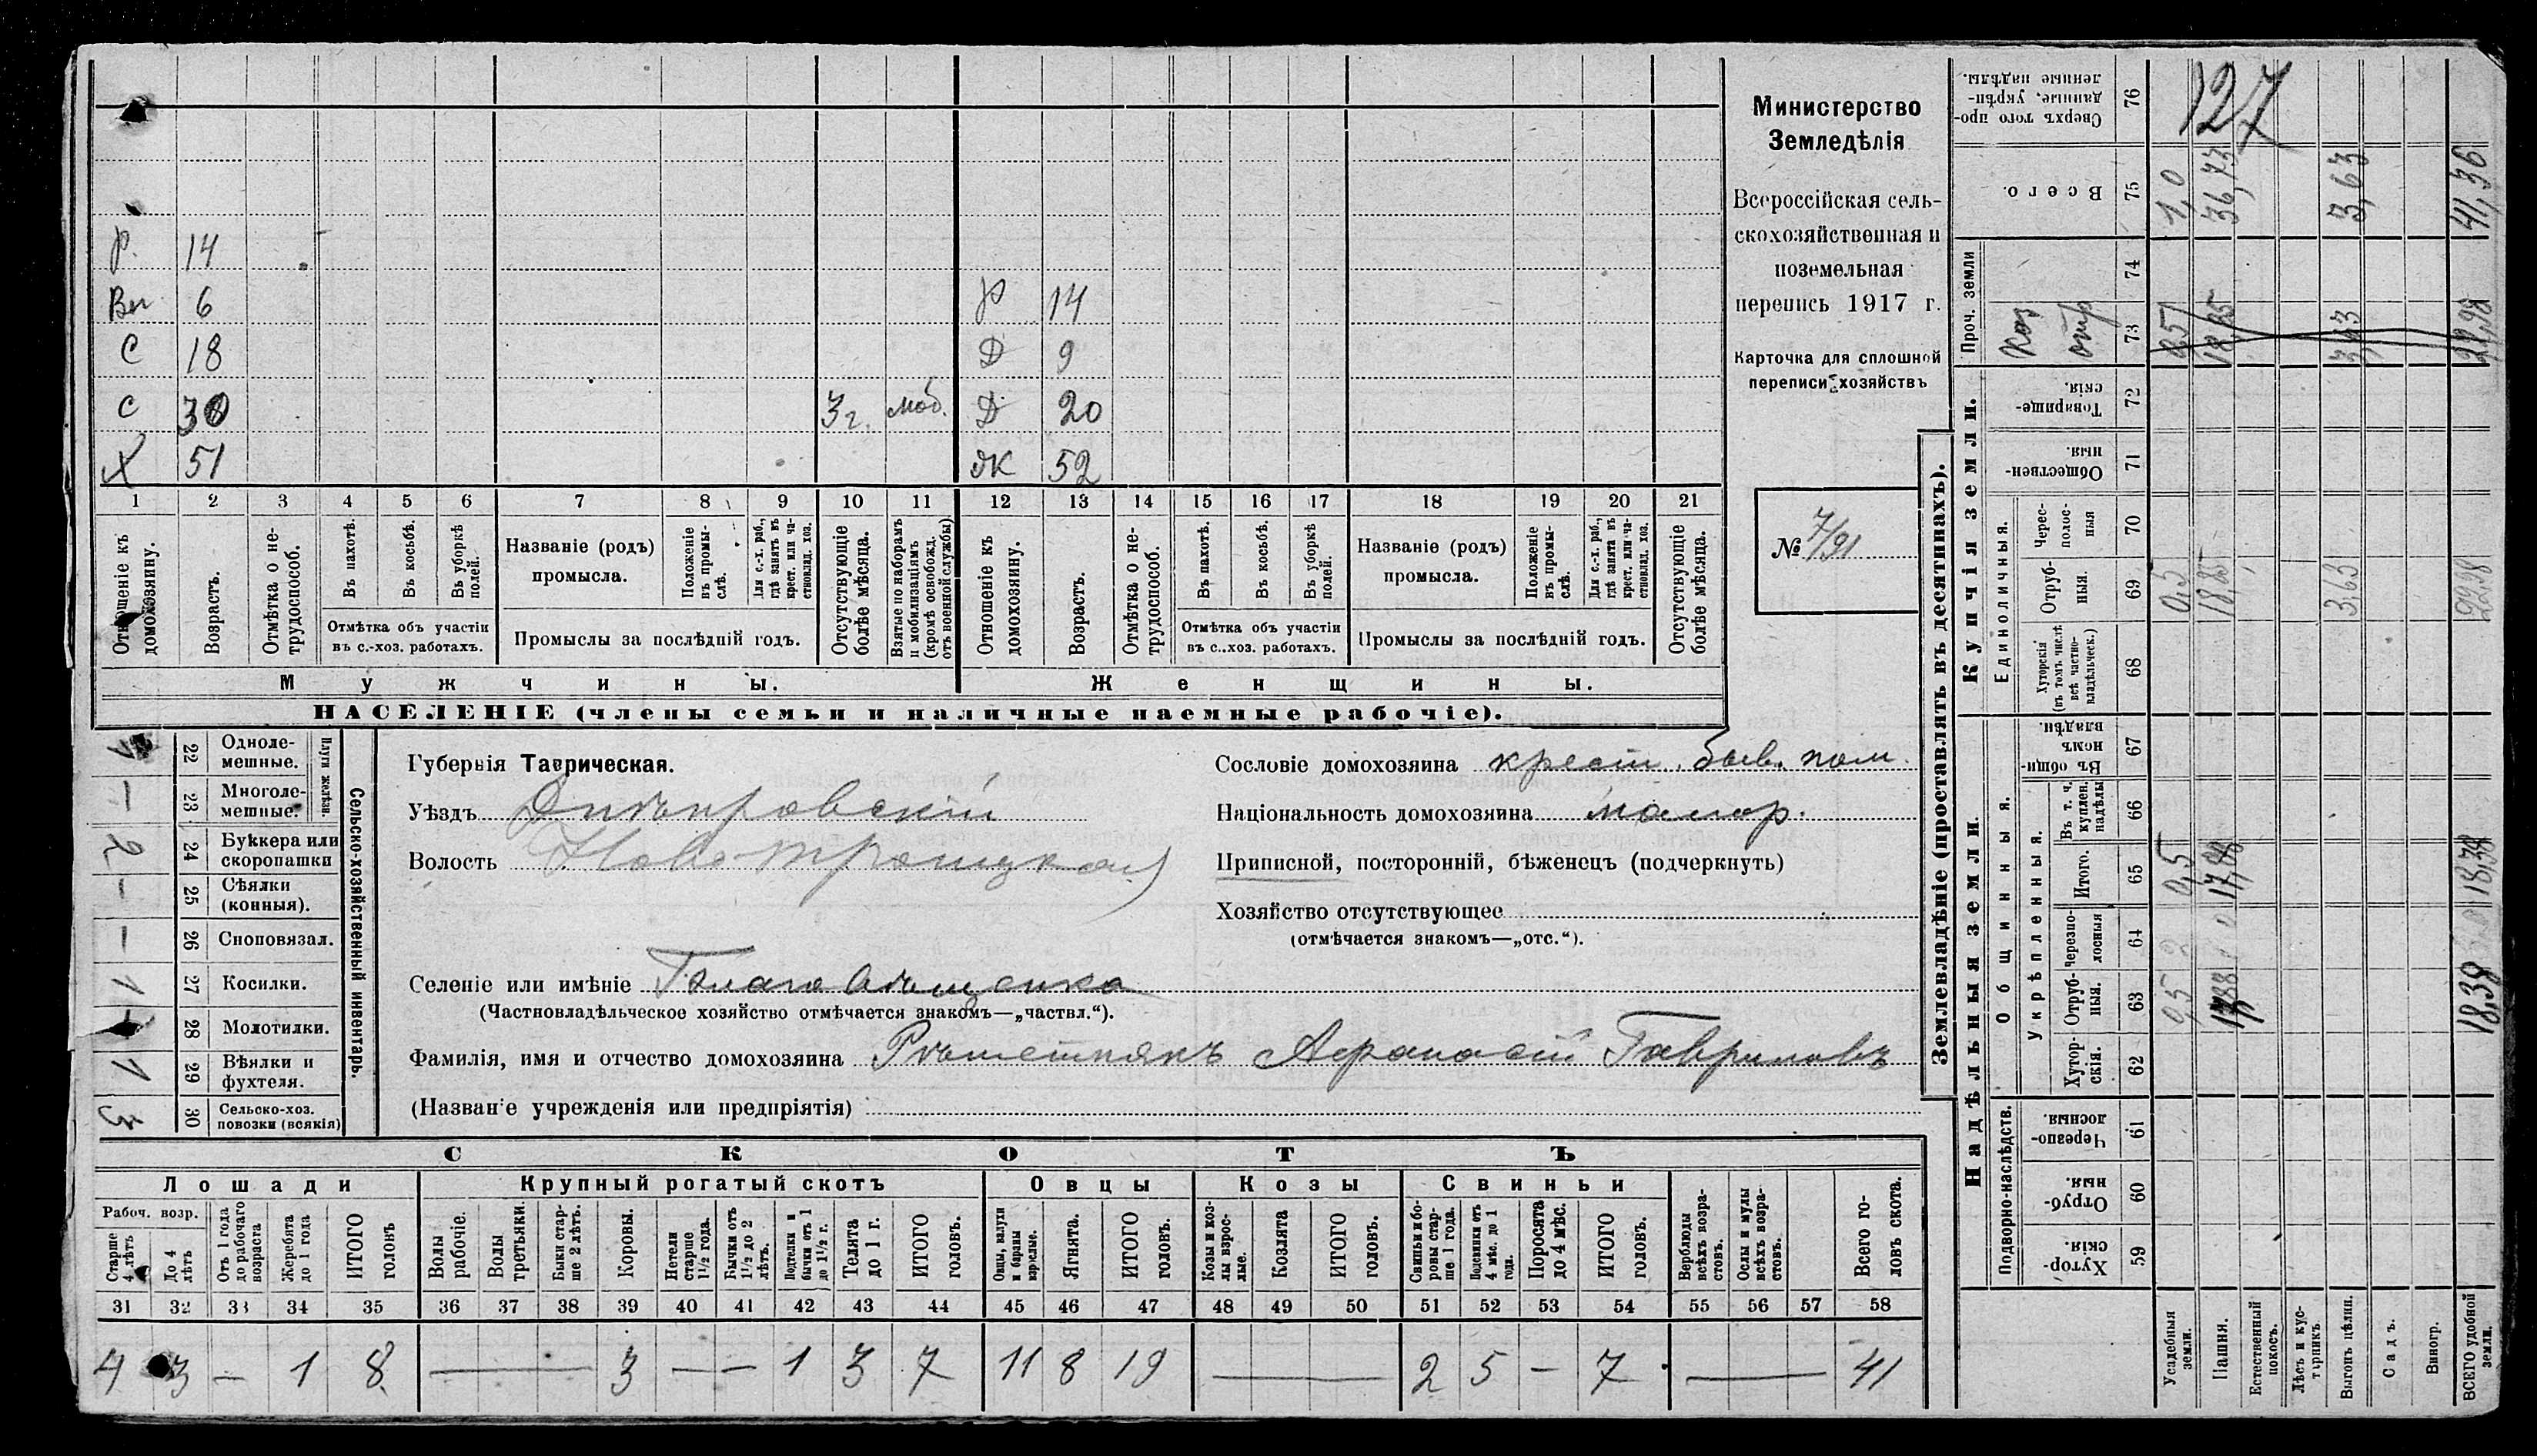 р. 14
Вн 6 Р 14
С 18 Д 9
С 30 3 г. моб. Д 20
Х 51 ЖК 52
1 2 3 4 5 6 7 8 9 10 11 12 13 14 15 16 17 18 19 20 21
Отношеніе къ домохозяину.
Возрастъ.
Отмѣтка о не-трудоспособ.
Въ пахотѣ.
Въ косьбѣ.
Въ уборкѣ полей.
Отмѣтка объ участіи въ с.-хоз. работахъ.
Названіе (родъ) промысла.
Положеніе въ промы-слѣ.
Для с.-х. раб., гдѣ занятъ въ крест. или ча-стновлад. хоз.
Промыслы за послѣдній годъ.
Отсутствующіе болѣе мѣсяца.
Взятые по наборамъ и мобилизаціямъ (кромѣ освобожд. отъ военной службы)
Отношеніе къ домохозяину.
Возрастъ.
Отмѣтка о не-трудоспособ.
Въ пахотѣ.
Въ косьбѣ.
Въ уборкѣ полей.
Отмѣтка объ участіи въ с..хоз. работахъ.
Названіе (родъ) промысла.
Положеніе въ промы-слѣ.
Для с.-х. раб., гдѣ занята въ крест. или ча-стновлад. хоз.
Промыслы за послѣдній годъ.
Отсутствующіе болѣе мѣсяца.
Мужчины. Женщины.
НАСЕЛЕНІЕ (члены семьи и наличные наемные рабочіе).
Министерство
Земледѣлія
Всероссійская сель-
скохозяйственная и
поземельная
перепись 1917 г.
Карточка для сплошной
переписи хозяйствъ
№ 7/91
Сельско-хозяйственный инвентарь.
Плуги желѣзн.
1 22 Одноле-мешные.
— 23 Многоле-мешные.
2 24 Буккера или скоропашки
— 25 Сѣялки (конныя).
— 26 Сноповязал.
1 27 Косилки.
28 Молотилки.
1 29 Вѣялки и фухтеля.
3 30 Сельско-хоз. повозки (всякія)
Губернія Таврическая.
Уѣздъ Днѣпровскій
Волость Ново-Троицкая
Селеніе или имѣніе Благовѣщенка
(Частновладѣльческое хозяйство отмѣчается знакомъ—„частвл.“).
Фамилія, имя и отчество домохозяина Рѣшетнякъ Афанасій Гавриловъ
(Названіе учрежденія или предпріятія)
Сословіе домохозяина крест. быв. пом.
Національность домохозяина малор.
Приписной, посторонній, бѣженецъ (подчеркнуть)
Хозяйство отсутствующее
(отмѣчается знакомъ—„отс.“).
СКОТЪ
Лошади Крупный рогатый скотъ Овцы Козы Свиньи
Рабоч. возр.
Старше 4 лѣтъ
До 4 лѣтъ
Отъ 1 года до рабочаго возраста
Жеребята до 1 года
ИТОГО головъ
Волы рабочіе.
Волы третьяки.
Быки стар-ше 2 лѣтъ.
Коровы.
Нетели старше 1½ года.
Бычки отъ 1½ до 2 лѣтъ.
Подтелки и бычки отъ 1 до 1½ г.
Телята до 1 г.
ИТОГО головъ.
Овцы, валухи и бараны взрослые.
Ягнята.
ИТОГО головъ.
Козы и коз-лы взрос-лые.
Козлята
ИТОГО головъ.
Свиньи и бо-ровы стар-ше 1 года.
Подсвинки отъ 4 мѣс. до 1 года.
Поросята до 4 мѣс.
ИТОГО головъ.
Верблюды всѣхъ возра-стовъ.
Ослы и мулы всѣхъ возра-стовъ.
Всего го-ловъ скота.
31 32 33 34 35 36 37 38 39 40 41 42 43 44 45 46 47 48 49 50 51 52 53 54 55 56 57 58
4 3 — 1 8 — 3 — — 1 3 7 11 8 19 — 2 5 — 7 — 41
Землевладѣніе (проставлять въ десятинахъ).
Купчія земли.
Надѣльныя земли.
127
Сверхъ того про-данные, укрѣп-ленные надѣлы. 76
Всего. 75 1,0 36,73 3,63 41,36
Проч. земли
74
73 0,5 18,85 3,63 22,98
Товарище-скія. 72
Обществен-ныя. 71
Единоличныя.
Черес-полос-ныя 70
Отруб-ныя. 69 0,5 18,85 3,63 22,98
Хуторскія (въ томъ числѣ всѣ частно-владѣльческ.) 68
Общинныя.
Въ общи-номъ владѣн. 67
Укрѣпленныя.
Въ т. ч. куплен. надѣлы 66
Итого. 65 0,5 17,88 18,38
Черезпо-лосныя 64
Отруб-ныя. 63 0,5 17,88 18,38
Хутор-скія. 62
Подворно-наслѣдств.
Черезпо-лосныя. 61
Отруб-ныя. 60
Хутор-скія. 59
Усадебныя земли.
Пашня.
Естественный покосъ.
Лѣсъ и кус-тарникъ.
Выгонъ цѣлин.
Садъ.
Виногр.
ВСЕГО удобной земли.